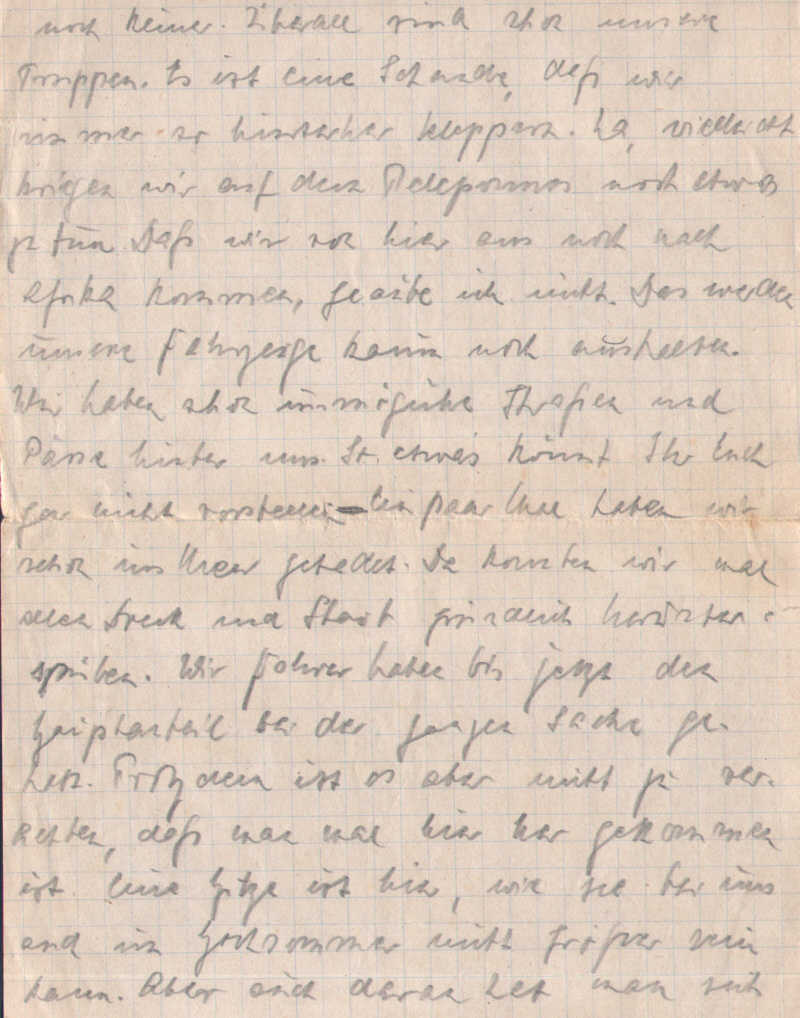 noch keiner. Überall sind schon unsere
Truppen. Es ist eine Schande, daß wir
immer so hinterher kleppern. Na, vielleicht
kriegen wir auf dem Peleponnes noch etwas
zu tun. Daß wir von hier aus noch nach
Afrika kommen, glaube ich nicht. Das werden
unsere Fahrzeuge kaum noch aushalten.
Wir haben schon unmögliche Straßen und
Pässe hinter uns. So etwas könnt Ihr Euch
gar nicht vorstellen. Ein paar Mal haben wir
schon im Meer gebadet. Da konnten wir mal
allen Dreck und Staub gründlich herunter-
spülen. Wir Fahrer haben bis jetzt den
Hauptanteil bei der ganzen Sache ge-
habt. Trotzdem ist es aber nicht zu ver-
achten, daß man mal hier her gekommen
ist. Eine Hitze ist hier, wie sie bei uns
im Hochsommer nicht größer sein
kann. Aber auch daran hat man sich